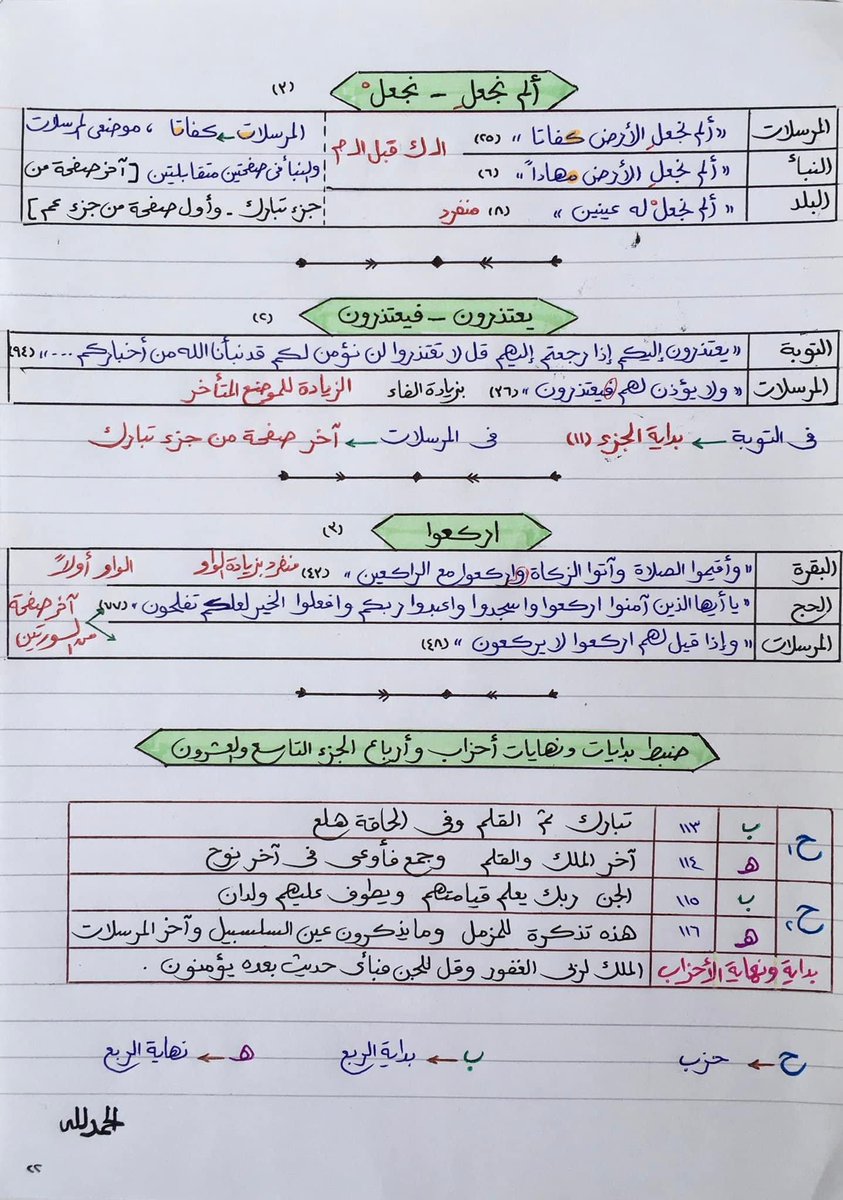 ألم نجعلِ - نجعلْ (٣)
المرسلات « ألم نجعلِ الأرض كفاتا » (٢٥) الـ ك قبل الـ م المرسلات ← كفاتا ، موضعى المرسلات
النبأ « ألم نجعلِ الأرض مهاداً » (٦) والنبأ فى صفحتين متقابلتين [ آخر صفحة من
البلد « ألم نجعلْ له عينين » (٨) منفرد جزء تبارك - وأول صفحة من جزء عم ]
يعتذرون - فيعتذرون (٢)
التوبة « يعتذرون إليكم إذا رجعتم إليهم قل لا تعتذروا لن نؤمن لكم قد نبأنا الله من أخباركم ... » (٩٤)
المرسلات « ولا يؤذن لهم فيعتذرون » (٣٦) بزيادة الفاء الزيادة للموضع المتأخر
فى التوبة ← بداية الجزء (١١) فى المرسلات ← آخر صفحة من جزء تبارك
اركعوا (٣)
البقرة « وأقيموا الصلاة وآتوا الزكاة واركعوا مع الراكعين » (٤٣) منفرد بزيادة الواو الواو أولاً
الحج « يا أيها الذين آمنوا اركعوا واسجدوا واعبدوا ربكم وافعلوا الخير لعلكم تفلحون » (٧٧) آخر صفحة
المرسلات « وإذا قيل لهم اركعوا لا يركعون » (٤٨) من السورتين
ضبط بدايات ونهايات أحزاب وأرباع الجزء التاسع والعشرون
ح١ ب ١١٣ تبارك ثم القلم وفى الحاقة هلع
هـ ١١٤ آخر الملك والقلم وجمع فأوعى فى آخر نوح
ح٢ ب ١١٥ الجن ربك يعلم قيامتهم ويطوف عليهم ولدان
هـ ١١٦ هذه تذكرة للمزمل وما يذكرون عين السلسبيل وآخر المرسلات
بداية ونهاية الأحزاب الملك لربى الغفور وقل للجن فبأى حديث بعده يؤمنون .
ح ← حزب ب ← بداية الربع هـ ← نهاية الربع
الحمد لله
٢٢